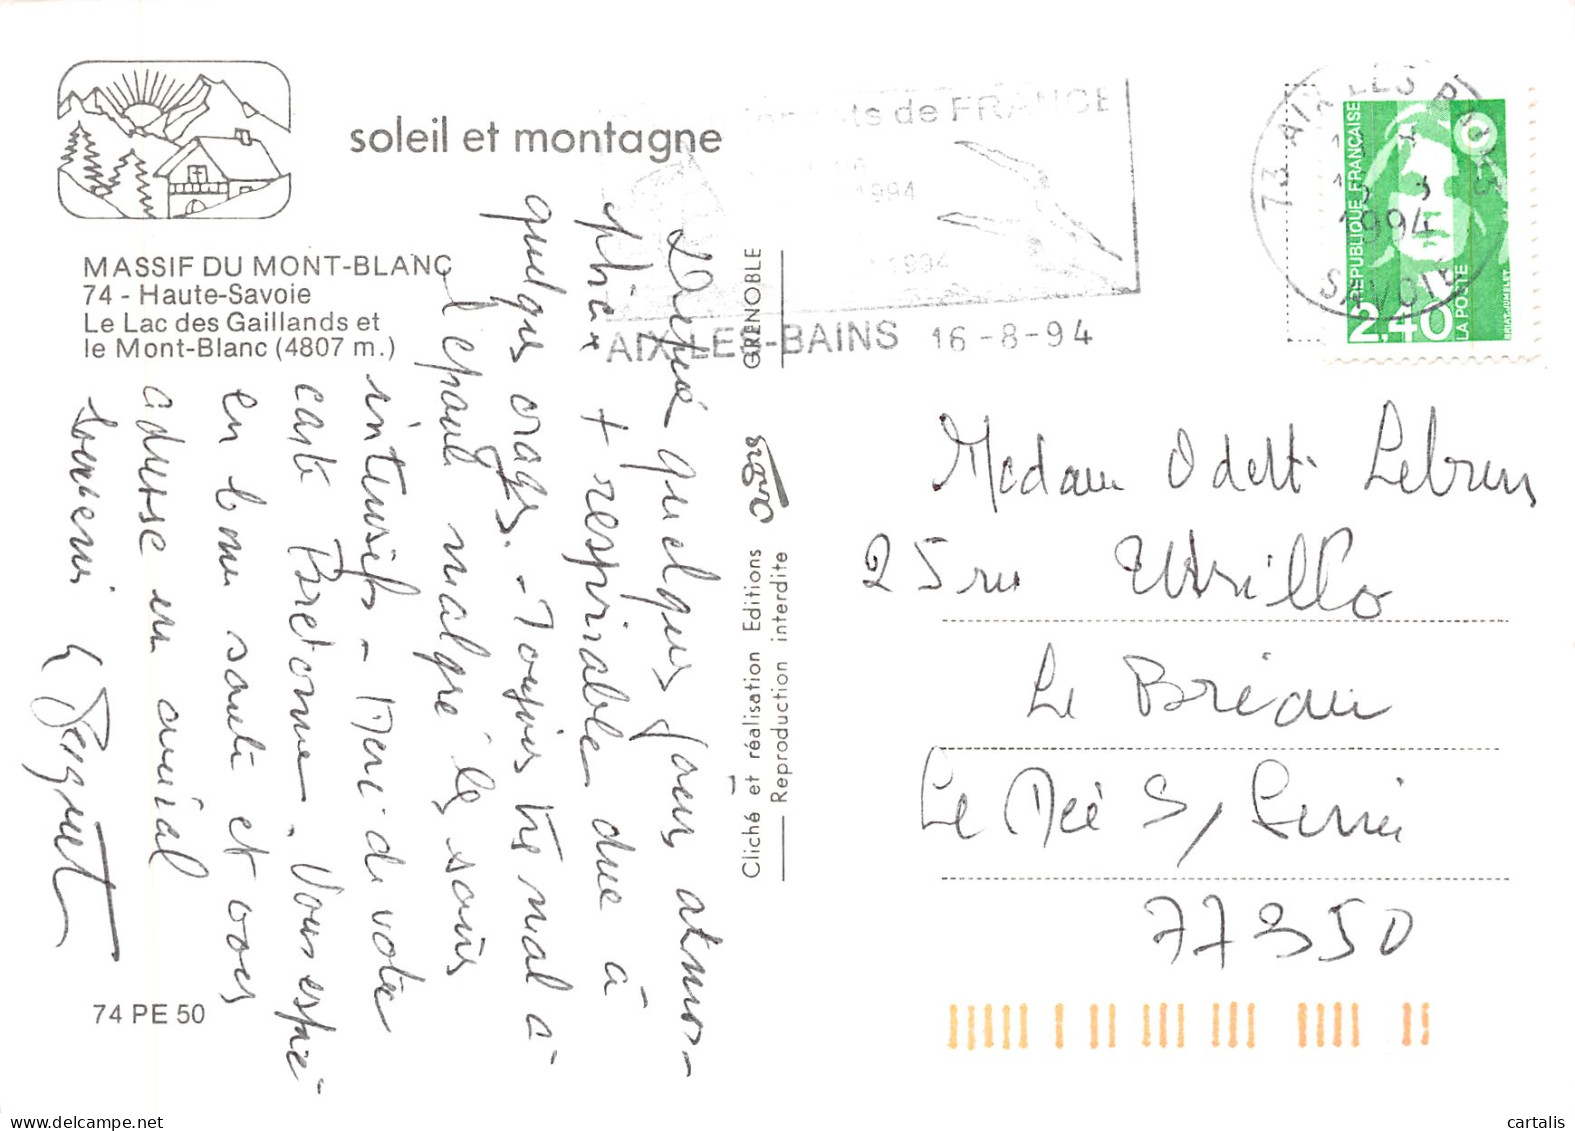 soleil et montagne
MASSIF DU MONT-BLANC
74 - Haute-Savoie
Le Lac des Gaillands et
le Mont-Blanc (4807 m.)
Depuis quelques jours, atmos-
phère + respirable due à
quelques orages. - Toujours très mal à
l'épaule malgré les soins
intensifs - Merci de votre
carte Bretonne. Vous espère
en bonne santé et vous
adresse un amical
souvenir
74 PE 50
Cliché et réalisation Editions GRENOBLE
Reproduction interdite
ts de FRANCE
1994
1994
AIX-LES-BAINS 16-8-94
73 AIX LES BAINS
1994
SAVOIE
REPUBLIQUE FRANÇAISE
2,40
LA POSTE
BRIAT-JUMELET
Madame Odette Lebrun
25 rue Utrillo
Le Bréau
Le Mée S/ Seine
77350
cartalis